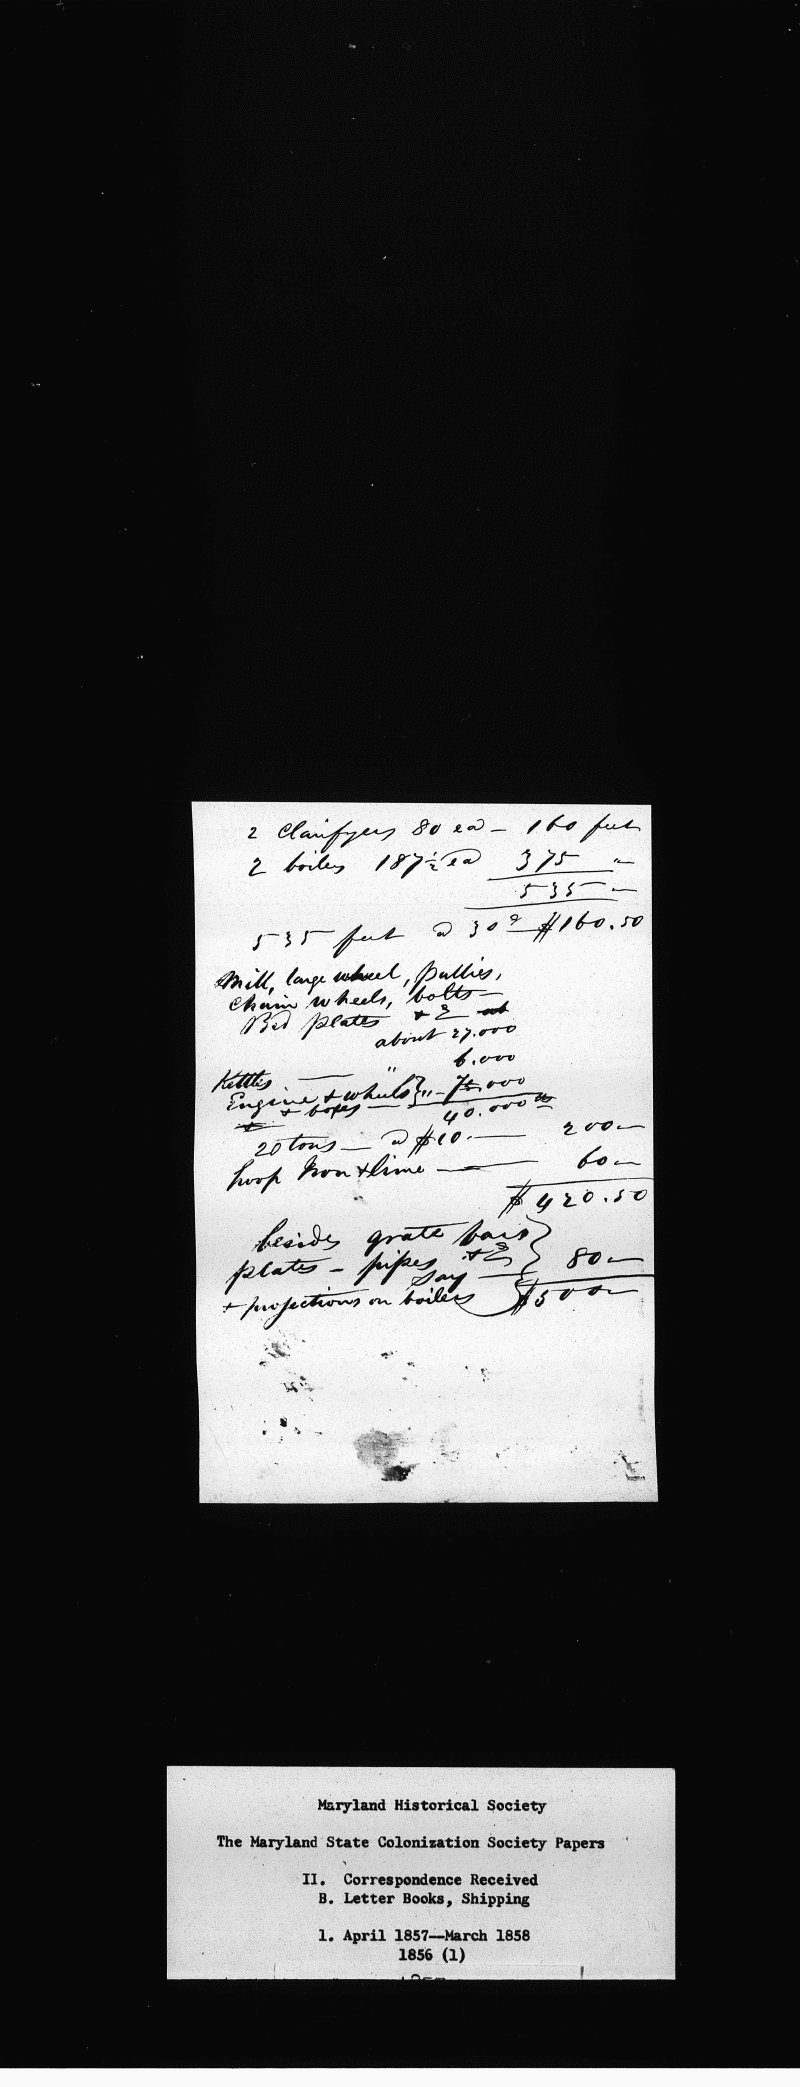 2 Clarifyers 80 ea – 160 feet
2 boilers 187½ ea 375 "
535 "
535 feet @ 30c $160.50
Mill, large wheel, pullies,
chain wheels, bolts –
Bed plates & c
about 27.000
6.000
Kettles — "
Engine & wheels } " 7.000
& boxes — 40.000 lbs
20 tons — @ $10. — 200 –
hoop Iron & lime — 60 –
$420.50
besides grate bars }
plates – pipes &c } 80 –
say —
+ projections on boilers $500 –
Maryland Historical Society
The Maryland State Colonization Society Papers
II. Correspondence Received
B. Letter Books, Shipping
1. April 1857--March 1858
1856 (1)